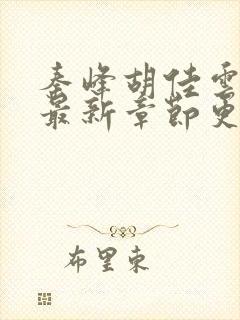 秦峰胡佳雲
最新章節更
布里東